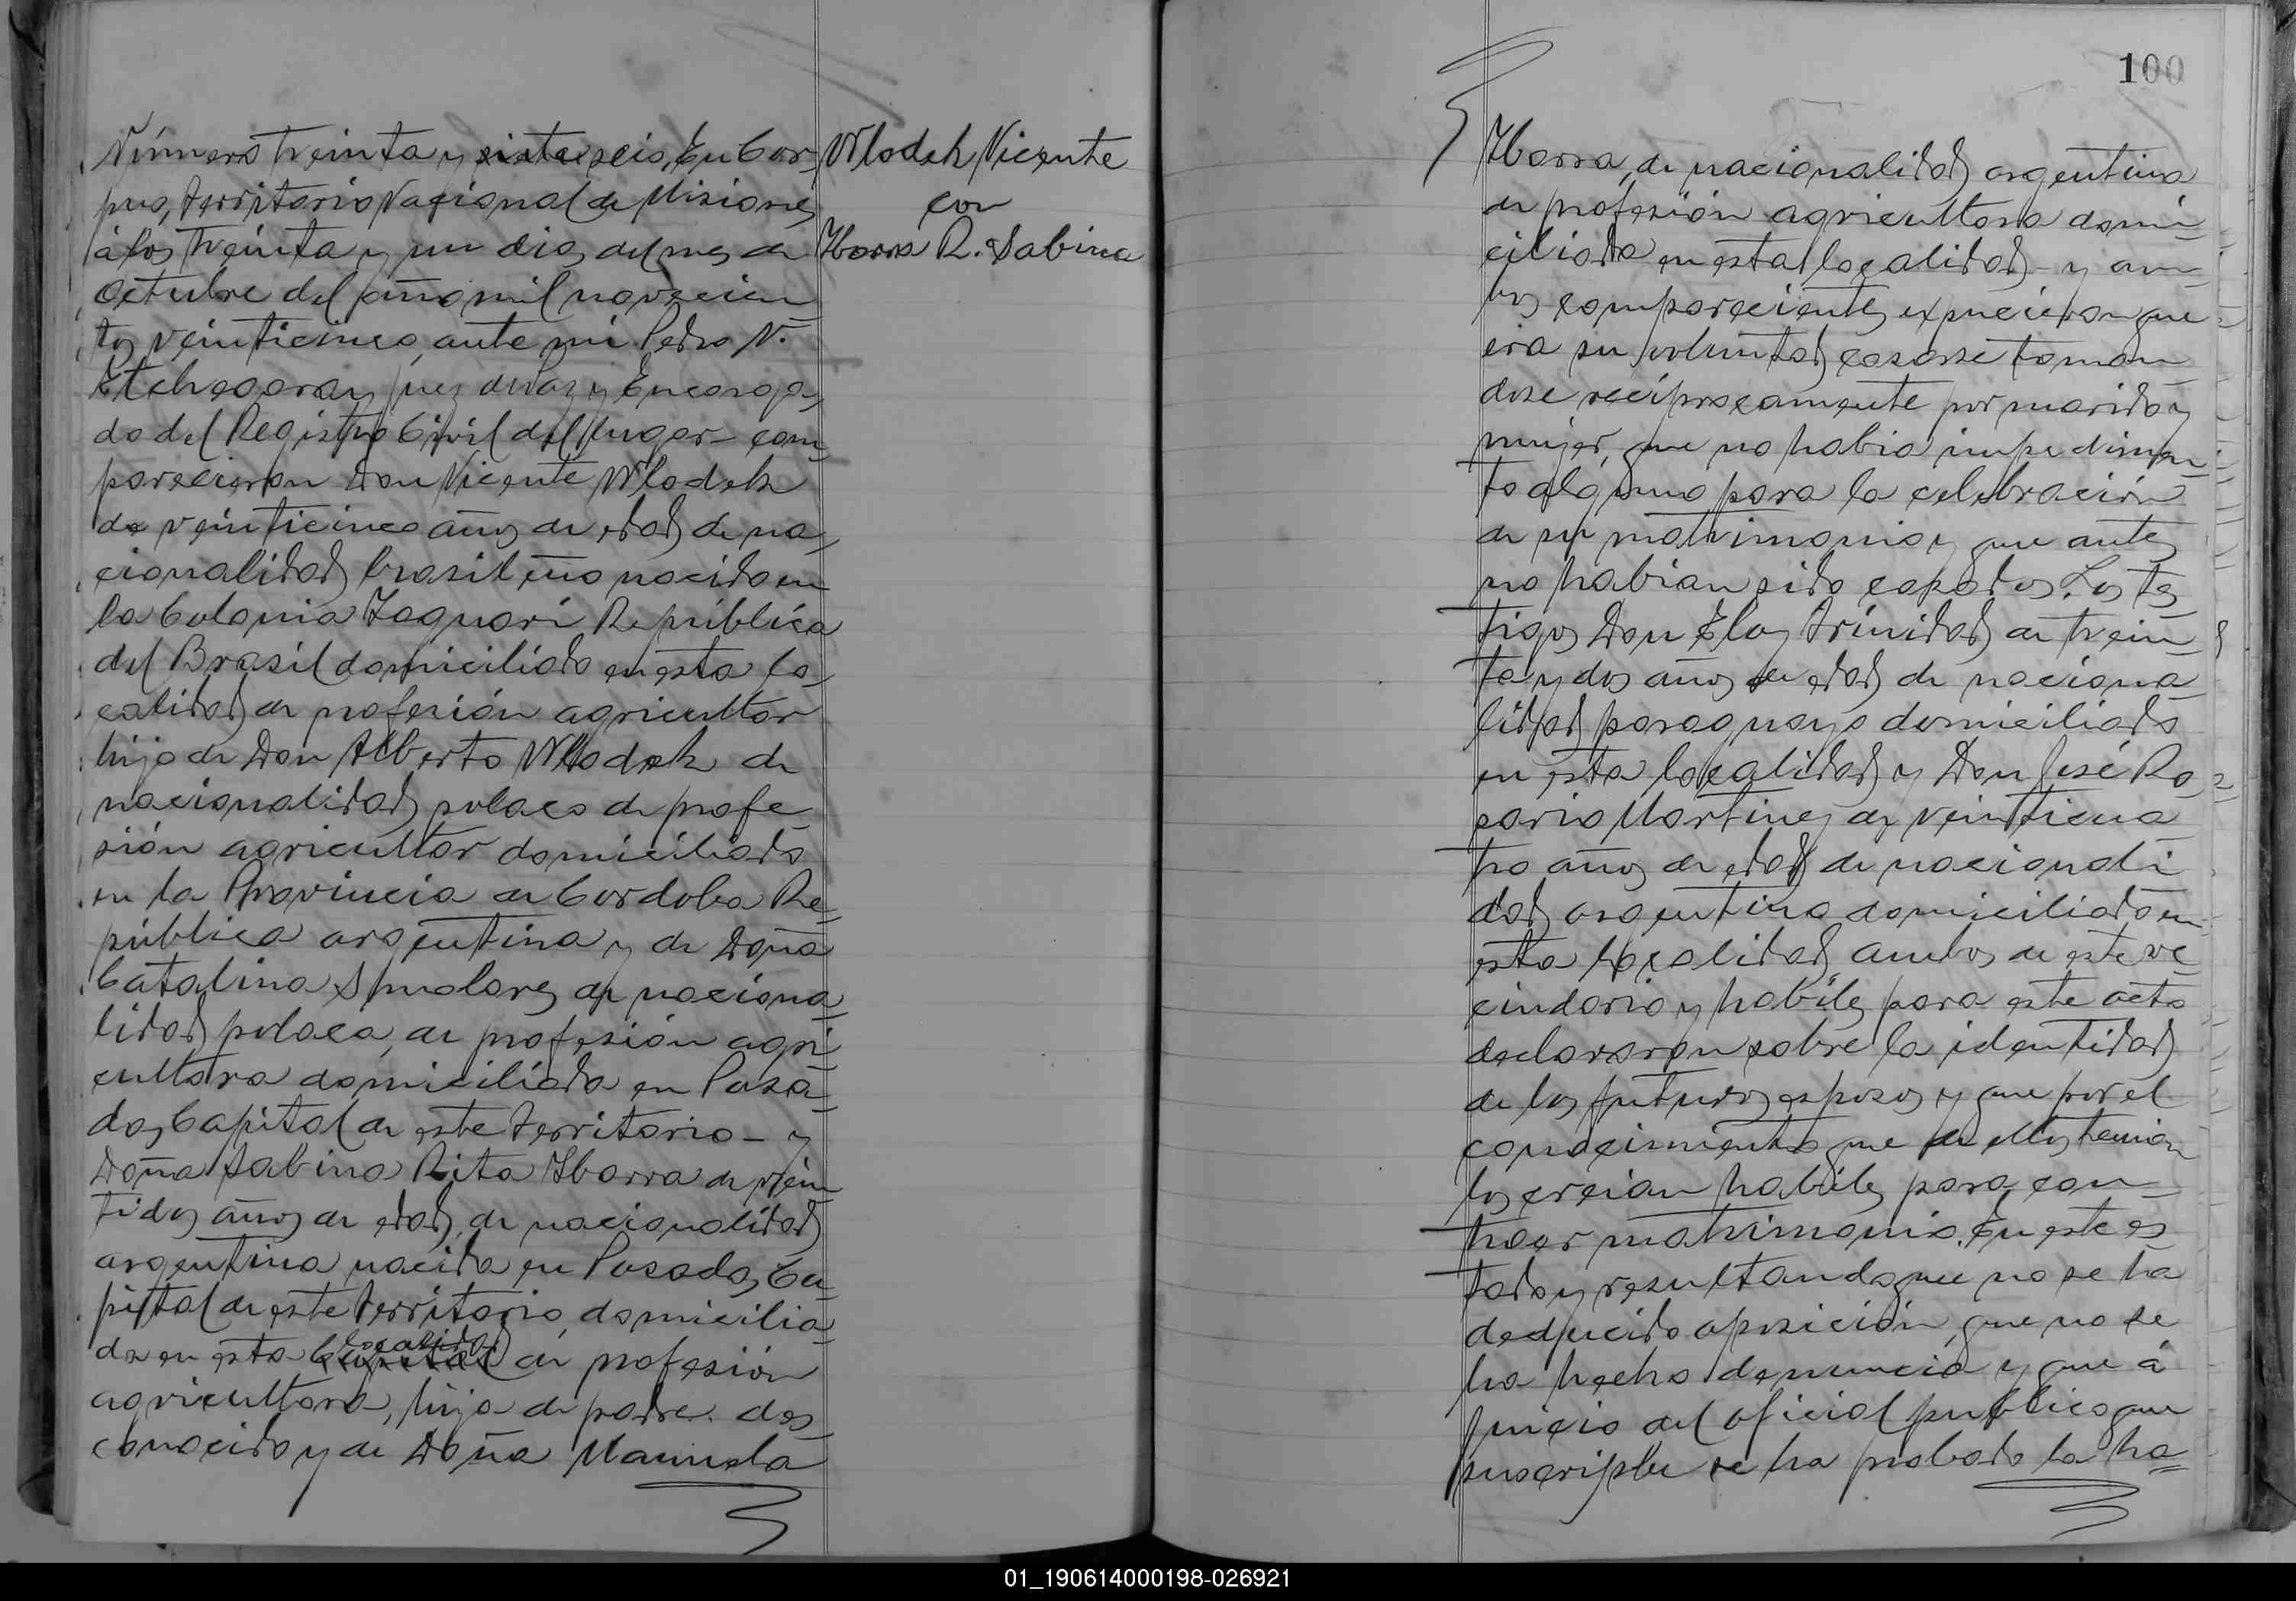 Número treinta y siete seis, En Cor-
pus, territorio Nacional de Misiones
á los treinta y un dias del mes de
Octubre del año mil novecien-
tos veinticinco, ante mi Pedro N.
Etchegaray juez de Paz y Encarga-
do del Registro Civil del lugar - com-
parecieron Don Vicente Wlodek
de veinticinco años de edad de na-
cionalidad brasileño nacido en
la Colonia Jaguari República
del Brasil domiciliado en esta lo-
calidad de profesión agricultor
hijo de Don Alberto Wlodek de
nacionalidad polaco de profe-
sión agricultor domiciliado
en la Provincia de Cordoba Re-
pública argentina y de Doña
Catalina de naciona-
lidad polaca, de profesión agri-
cultora domiciliada en Posa-
das Capital de este territorio - y
Doña Sabina Rita Ibarra de vein-
tidos años de edad, de nacionalidad
argentina nacida en Posadas Ca-
pital de este territorio, domicilia-
localidad
da en esta Capital de profesión
agricultora, hija de padre des-
conocido y de Doña Manuela
Wlodek Vicente
con
Ibarra R. Sabina
100
Ibarra, de nacionalidad argentina
de profesión agricultora domi-
ciliada en esta localidad - y am-
bos comparecientes expucieron que
era su voluntad casarse toman-
dose recíprocamente por marido y
mujer, que no habia impedimen-
to alguno para la celebración
de su matrimonio y que antes
no habian sido casados. Los tes-
tigos Don Eloy Trinidad de trein-
ta y dos años de edad de naciona-
lidad paraguayo domiciliado
en esta localidad y Don José Ro-
sario Martinez de veinticua-
tro años de edad de nacionali-
dad argentino domiciliado en
esta localidad ambos de este ve-
cindario y habiles para este acto
declararon sobre la identidad
de los futuros esposos y que por el
conocimiento que de ellos tenian
los creian habiles para con-
traer matrimonio. En este es-
tado y resultando que no se ha
deducido oposición, que no se
ha hecho denuncia y que á
juicio del oficial publico que
suscripbe se ha probado la ha-
01_190614000198-026921